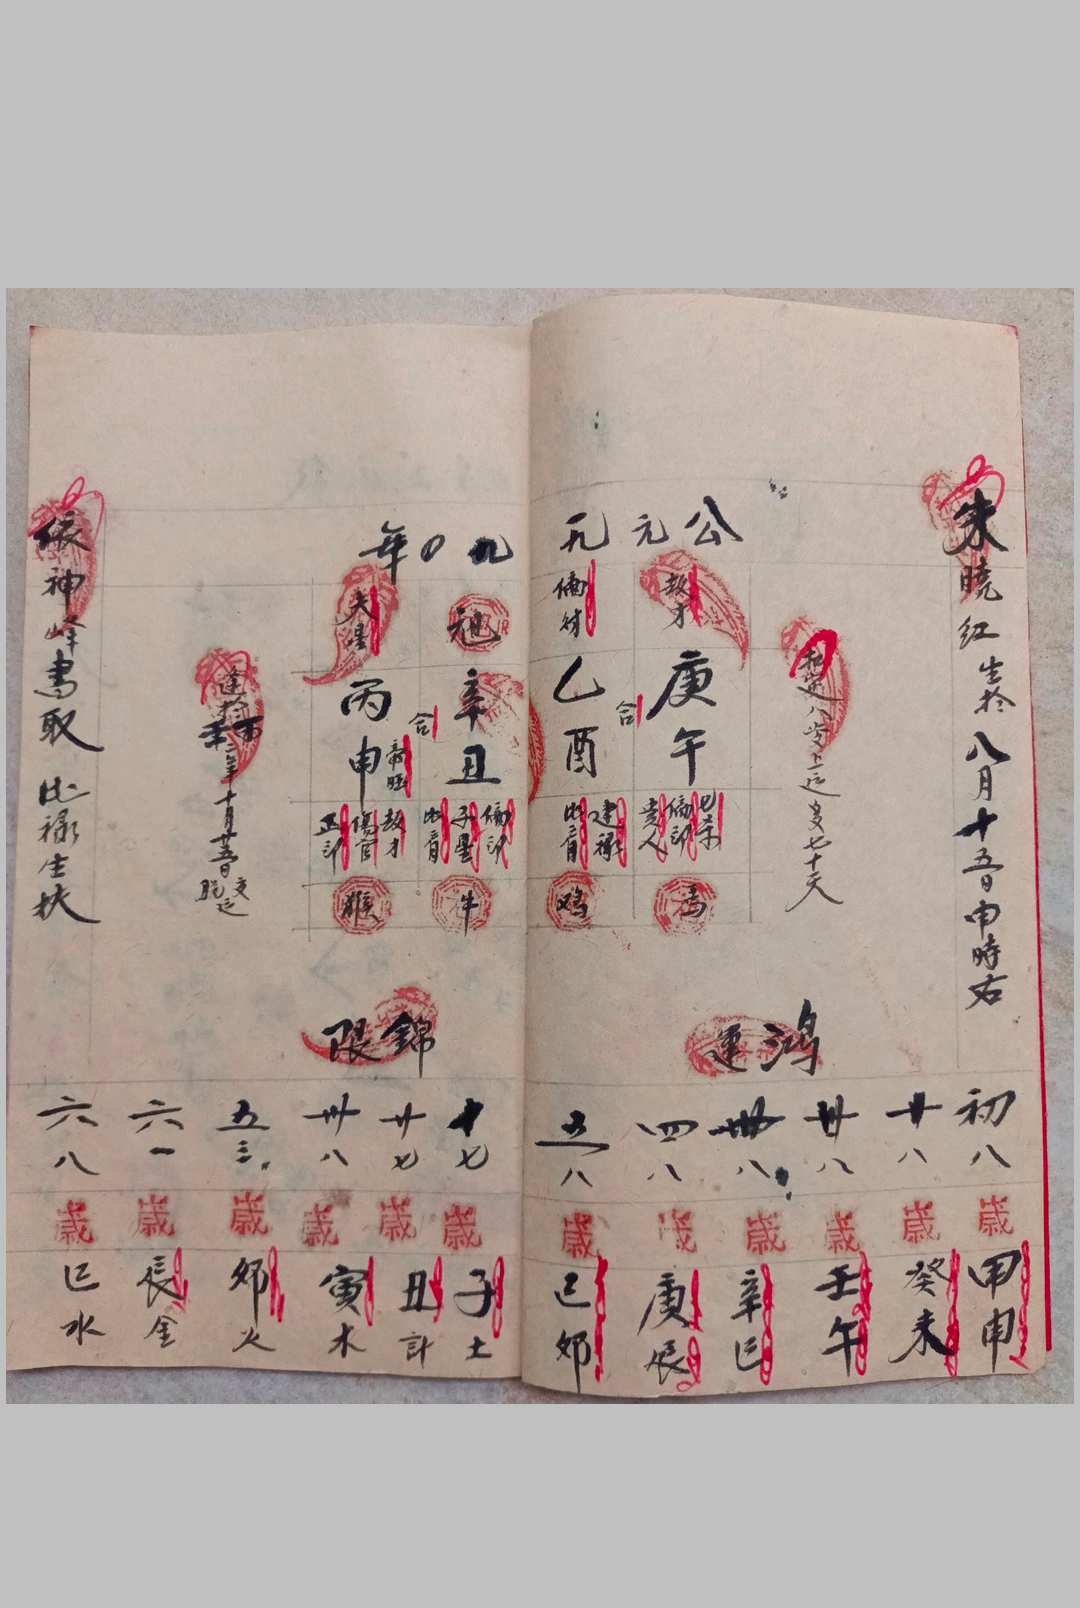 朱曉红生於八月十五日申時右
起運八岁上运多七十天
公元一九
九0年
劫才
庚
午
七杀
偏印
贵人
馬
合
偏财
乙
酉
建禄
比肩
鸡
旭
辛
丑
偏印
子星
比肩
牛
合
夫星
丙
申
帝旺
劫才
傷官
正印
猴
逢
年
十月廿五日
交运
依神峰書取
比禄生扶
鴻運
初八歲甲申
廿八歲癸未
卅八歲壬午
卌八歲辛巳
四八歲庚辰
五八歲己卯
錦限
十七歲子土
廿七歲丑計
卅八歲寅木
五三歲卯火
六一歲辰金
六八歲巳水